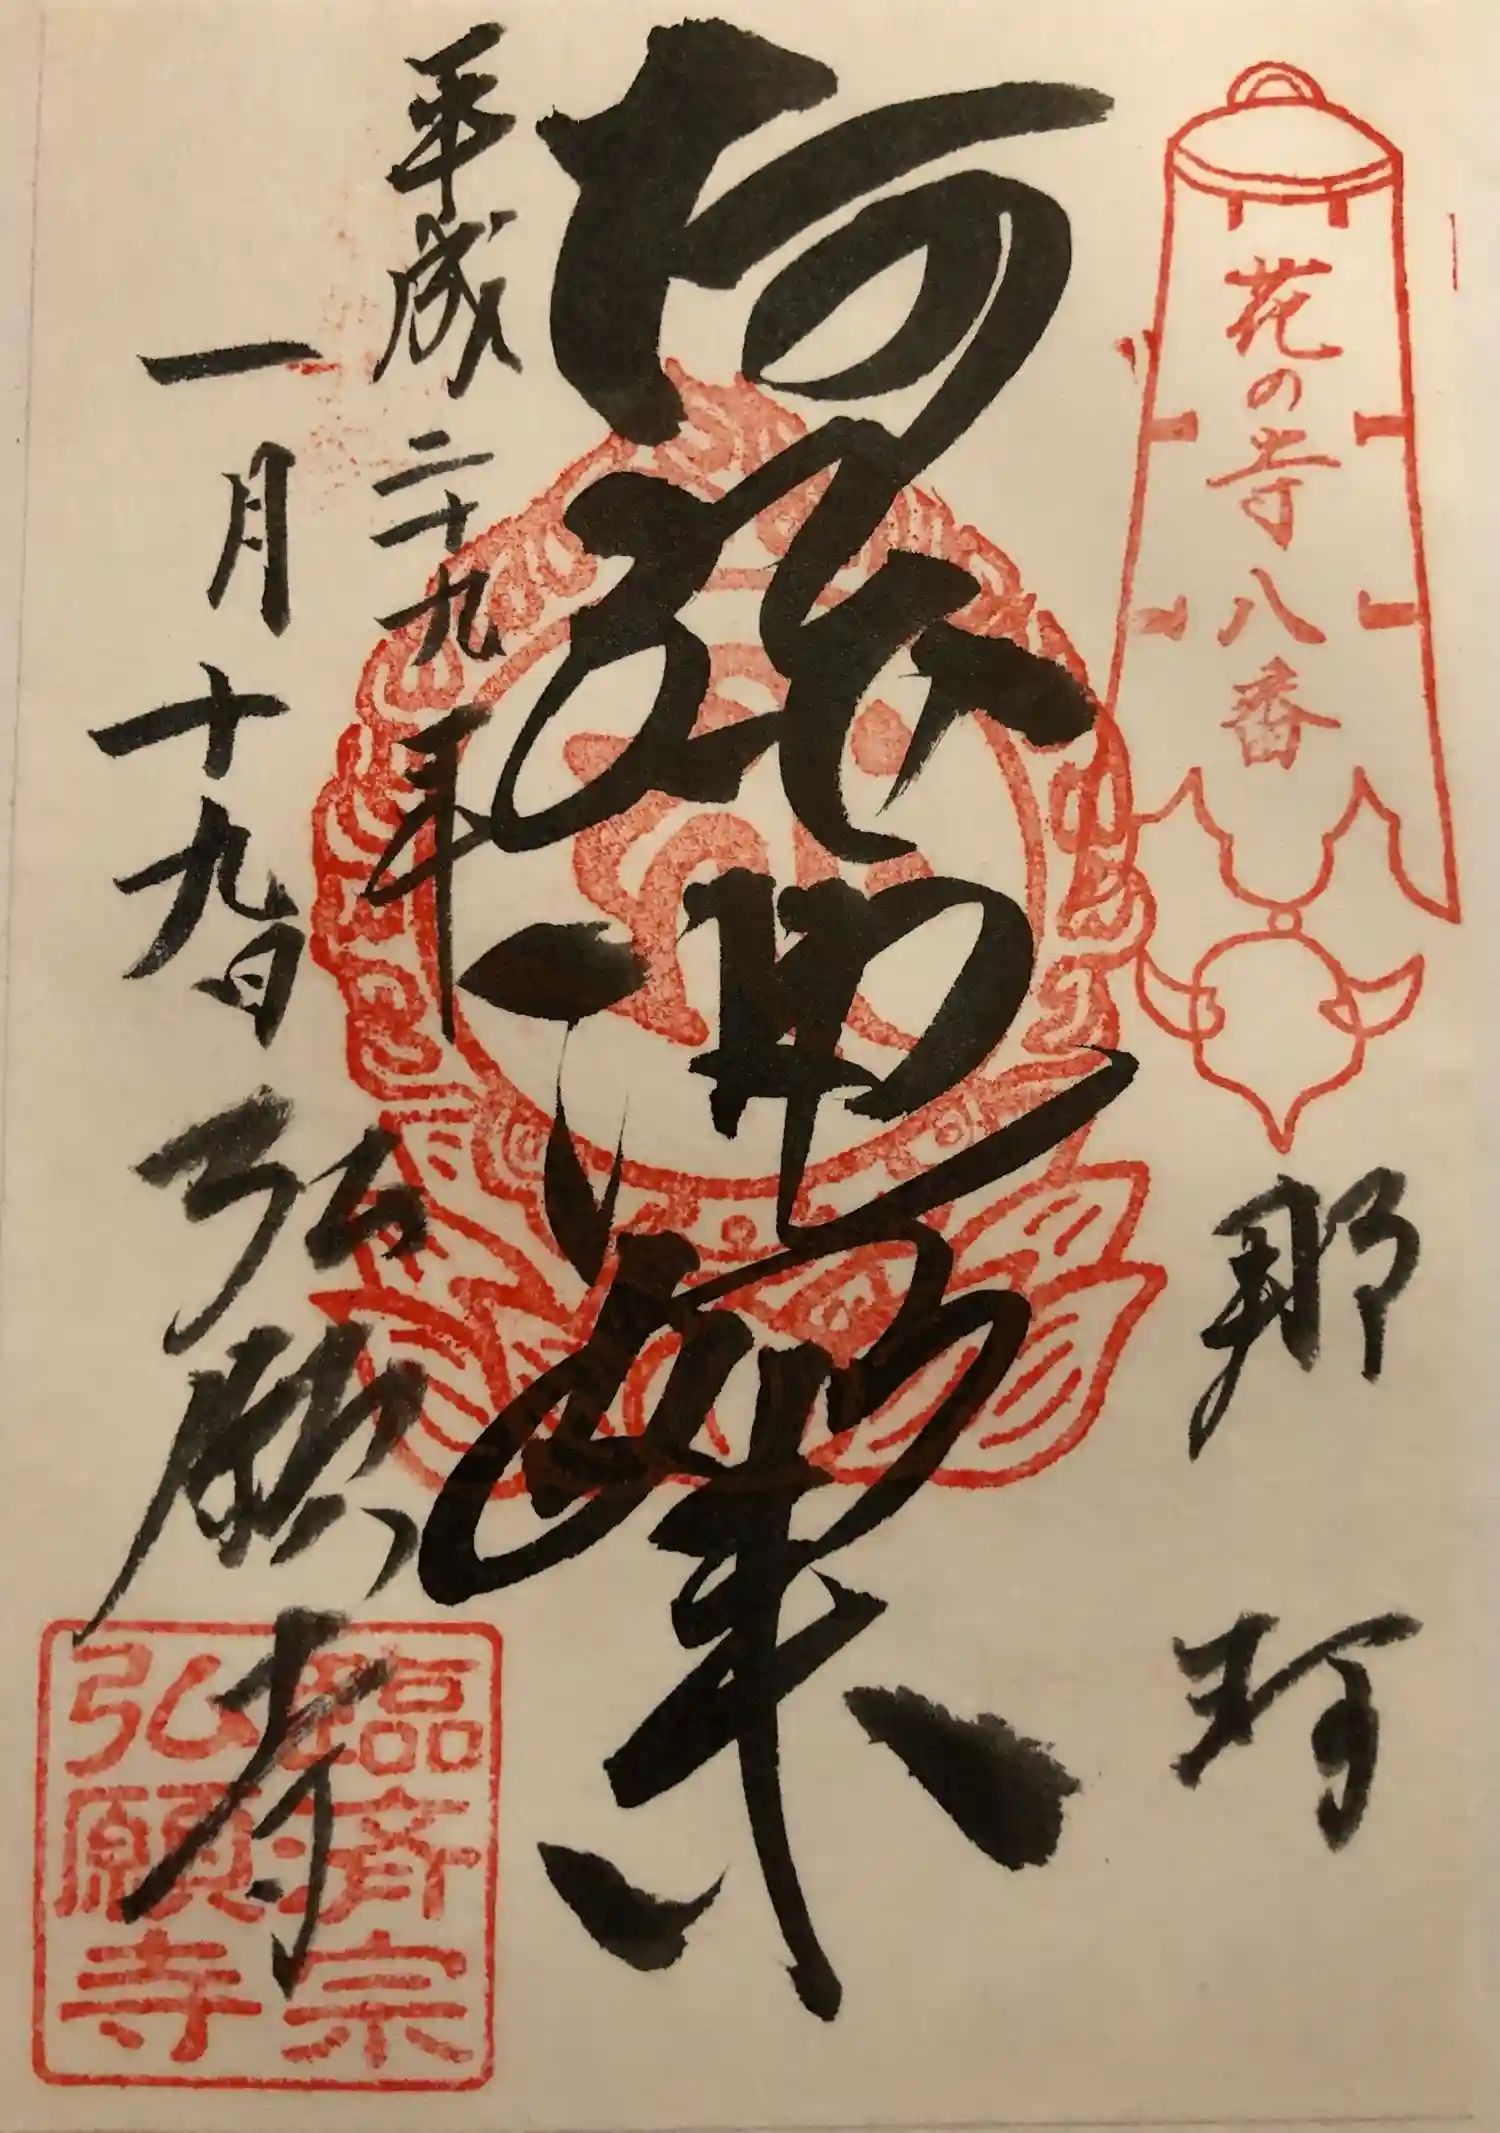 花の寺八番
那珂
阿弥陀如来
平成二十九年
一月十九日 弘願寺
臨済宗
弘願寺